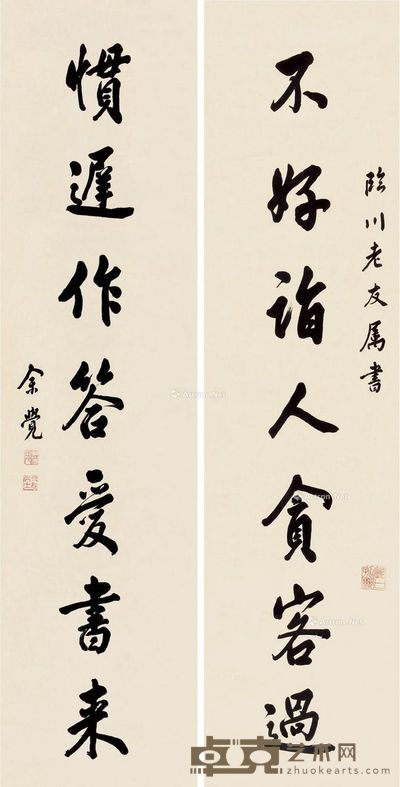 臨川老友属書
不好詣人貪客過
慣遲作答愛書来
余覺
Artron.Net
Artron.Net
Artron.Net
Artron.Net
卓克艺术网
zhuokearts.com